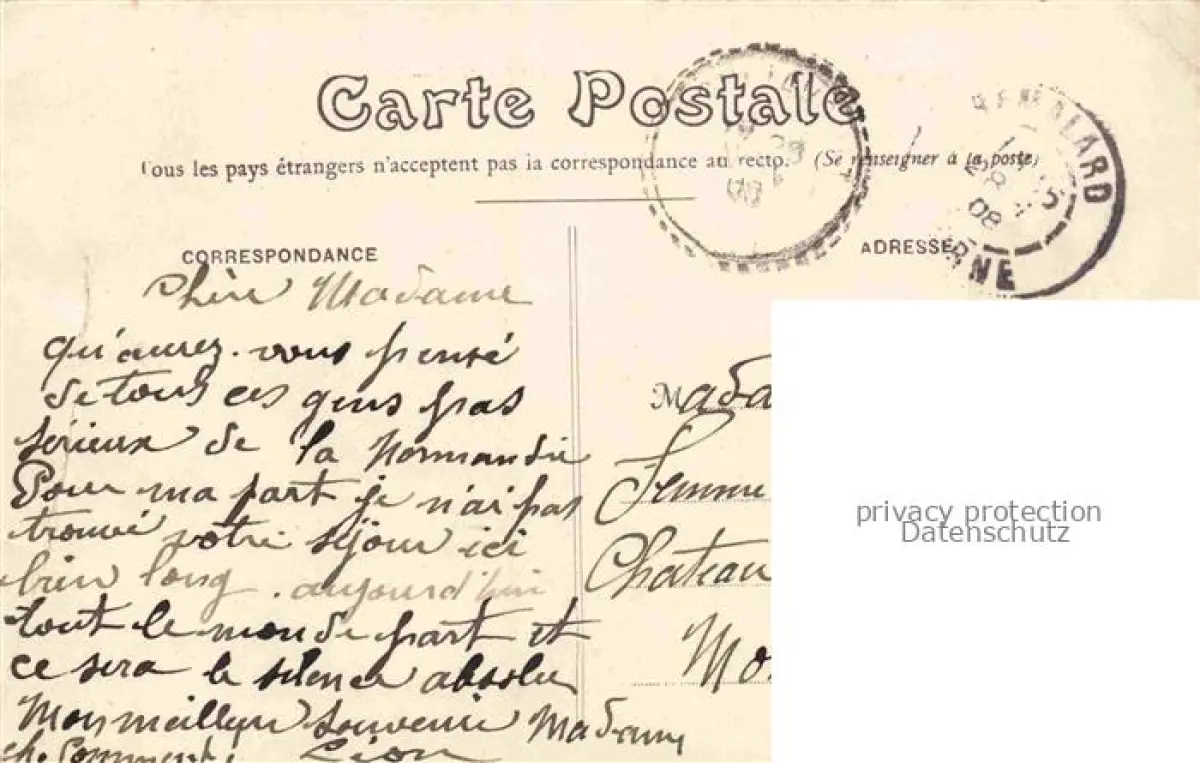 Carte Postale
Tous les pays étrangers n'acceptent pas la correspondance au recto. (Se renseigner à la poste)
CORRESPONDANCE
ADRESSE
REMALARD
08
ORNE
Chère Madame
qu'aurez-vous pensé
de tous ces gens pas
sérieux de la Normandie
Pour ma part je n'ai pas
trouvé votre séjour ici
bien long. aujourd'hui
tout le monde part et
ce sera le silence absolu
Mon meilleur souvenir Madame
Léon
Mada
Femme
Chateau
Mo
privacy protection
Datenschutz